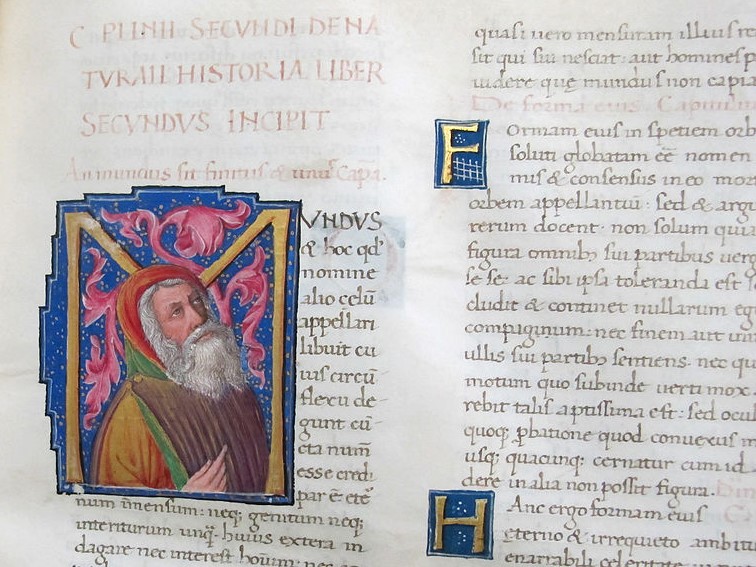 C PLINII SECVNDI DE NA
TVRALI HISTORIA LIBER
SECVNDVS INCIPIT
An mundus sit finitus & unus Capᵃ.
MVNDVS
& hoc qđ
nomine
alio celū
appellari
libuit cu
ius circū
flexu de
gunt cū
cta num̄
esse credi
par ē: etē
num īmensum: neq; genitum neq;
interiturum unq̄. huius extera in
dagare nec interest hoīum: nec
quasi uero mensuram illius re
sit qui sui nesciat: aut homines p
uidere que mundus non capia
De forma eius. Capitulum
Formam eius in spetiem orb
soluti globatam eē nomen
mis & consensus in eo mor
orbem appellantiū: sed & argu
rerum docent: non solum quia
figura omnibȝ sui partibus uerg
se se: ac sibi ipsa toleranda est s
cludit & continet nullarum eg
compaginum: nec finem aut ini
ullis sui partibȝ sentiens: nec qu
motum quo subinde uerti mox
rebit talis aptissima est: sed ocul
quoq; ꝓbatione quod conuexus m
usq; quacunq; cernatur cum id
dere in alia non possit figura.
Hanc ergo formam eius
eterno & irrequieto ambitu
enarrabili celeritate